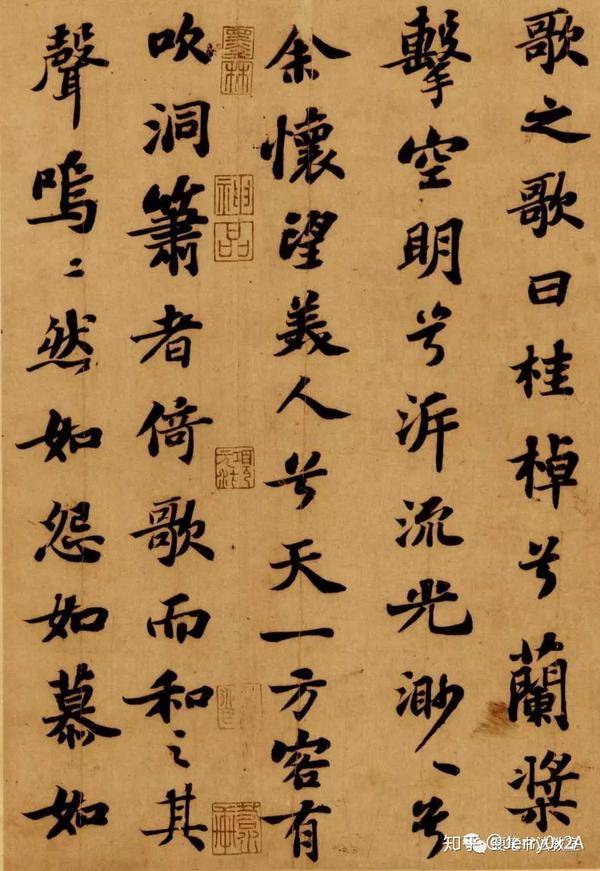 歌之歌曰桂棹兮蘭槳
擊空明兮泝流光渺〻兮
余懷望美人兮天一方客有
吹洞簫者倚歌而和之其
聲嗚〻然如怨如慕如
墨林
神品
知乎 @Jerry0x2A